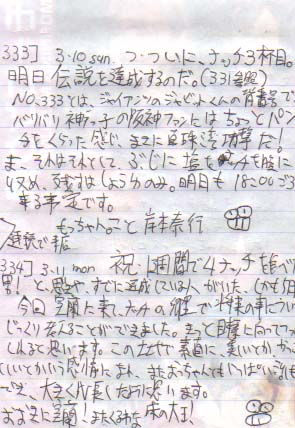 333] 3.10 sun. つ・ついに、ナッチ3杯目。
明日伝説を達成するのだ。(331参照)
No.333とは、ジャイアンツのジャビットくんの背番号で
バリバリ神ダッ子の阪神ファンにはちょっとパン
チをくらった感じ、まさに直球 攻撃だ!
ま、それはそれとして、ぶじに塩も 腹に
収め、残すはしょうゆのみ。明日も18:00ごろ
来る予定です。
もっちゃんこと岸本泰行
334] 3.11 mon 祝 1週間で4ナッチを食べ
男!と思いや、すでに達成している人がいた。(しかも1日
今回 室蘭に来て、ナッチの の上で将来の事につい
じっくり考えることができました。きっと目標に向かってつ
しれると思います。この な 、素直に、美しいとか、かっこ
いいとかいう感情に また、おっちゃんもいっぱい
でき、大きく成長したように思います。
おおきに室蘭!またくるぜよ 大王!